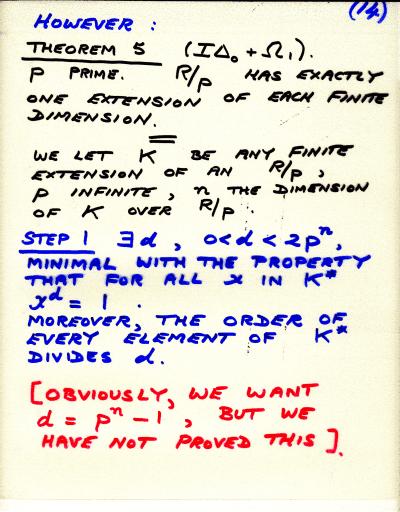 (14)
HOWEVER :
THEOREM 5 (IΔ₀ + Ω₁).
P PRIME. R/p HAS EXACTLY
ONE EXTENSION OF EACH FINITE
DIMENSION.
WE LET K BE ANY FINITE
EXTENSION OF AN R/p,
P INFINITE, n THE DIMENSION
OF K OVER R/p.
STEP 1 ∃d, 0<d<2pⁿ,
MINIMAL WITH THE PROPERTY
THAT FOR ALL x IN K*
xᵈ = 1 .
MOREOVER, THE ORDER OF
EVERY ELEMENT OF K*
DIVIDES d.
[OBVIOUSLY, WE WANT
d = pⁿ - 1, BUT WE
HAVE NOT PROVED THIS].